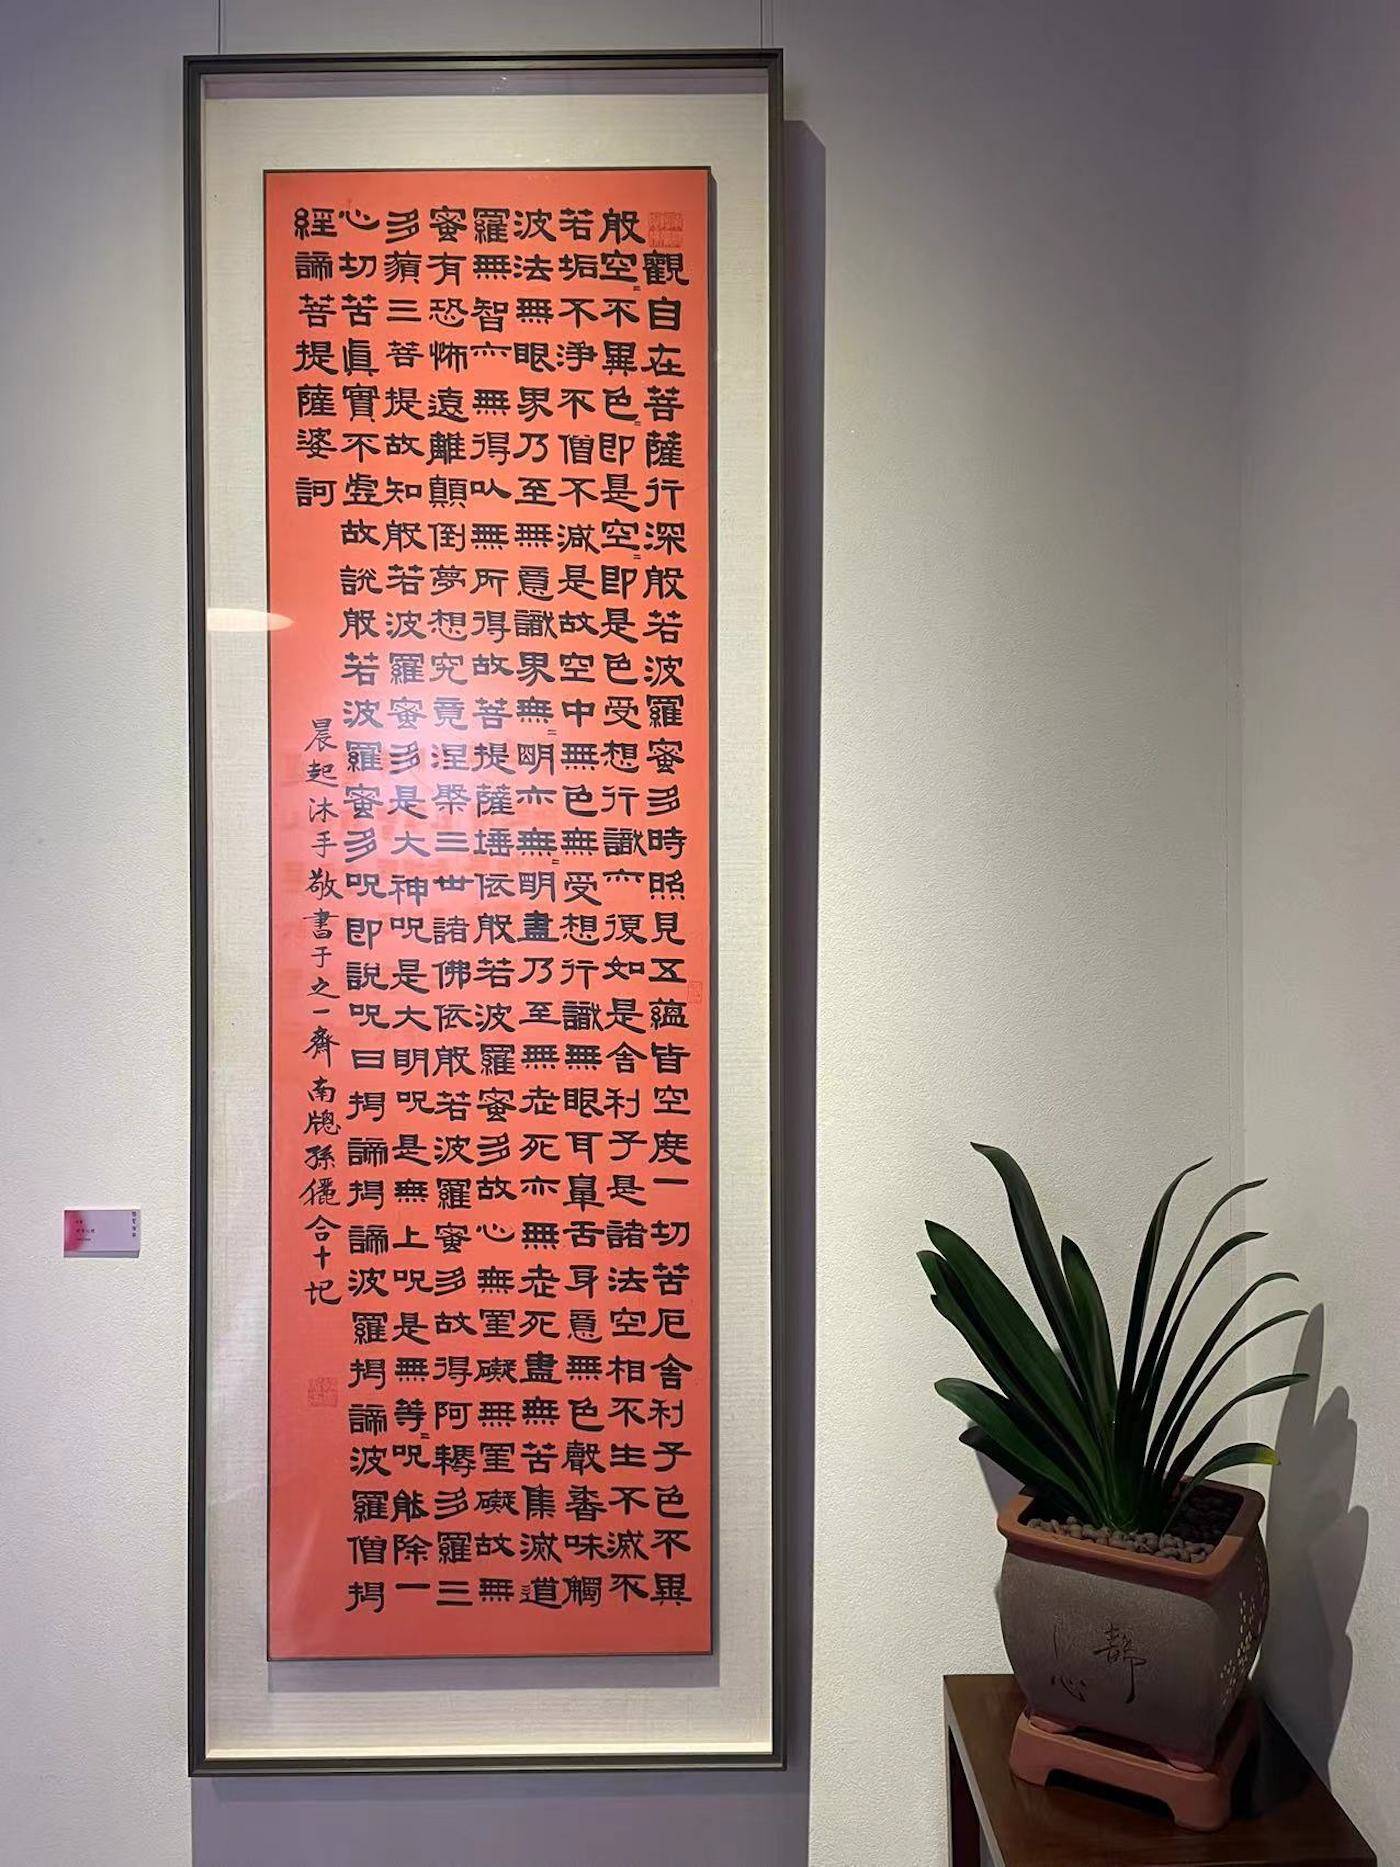 般若波羅蜜多心經
觀自在菩薩行深般若波羅蜜多時照見五蘊皆空度一切苦厄舍利子色不異
空〻不異色〻即是空〻即是色受想行識亦復如是舍利子是諸法空相不生不滅不
垢不淨不僧不減是故空中無色無受想行識無眼耳鼻舌身意無色聲香味觸
法無眼界乃至無意識界無〻明亦無〻明盡乃至無老死亦無老死盡無苦集滅道
無智亦無得以無所得故菩提薩埵依般若波羅蜜多故心無罣礙無罣礙故無
有恐怖遠離顛倒夢想究竟涅槃三世諸佛依般若波羅蜜多故得阿耨多羅三
藐三菩提故知般若波羅蜜多是大神咒是大明咒是無上咒是無等〻咒能除一
切苦眞實不虛故說般若波羅蜜多咒即說咒曰揭諦揭諦波羅揭諦波羅僧揭
諦菩提薩婆訶
晨起沐手敬書于之一齋南牕孫儷合十記
靜心